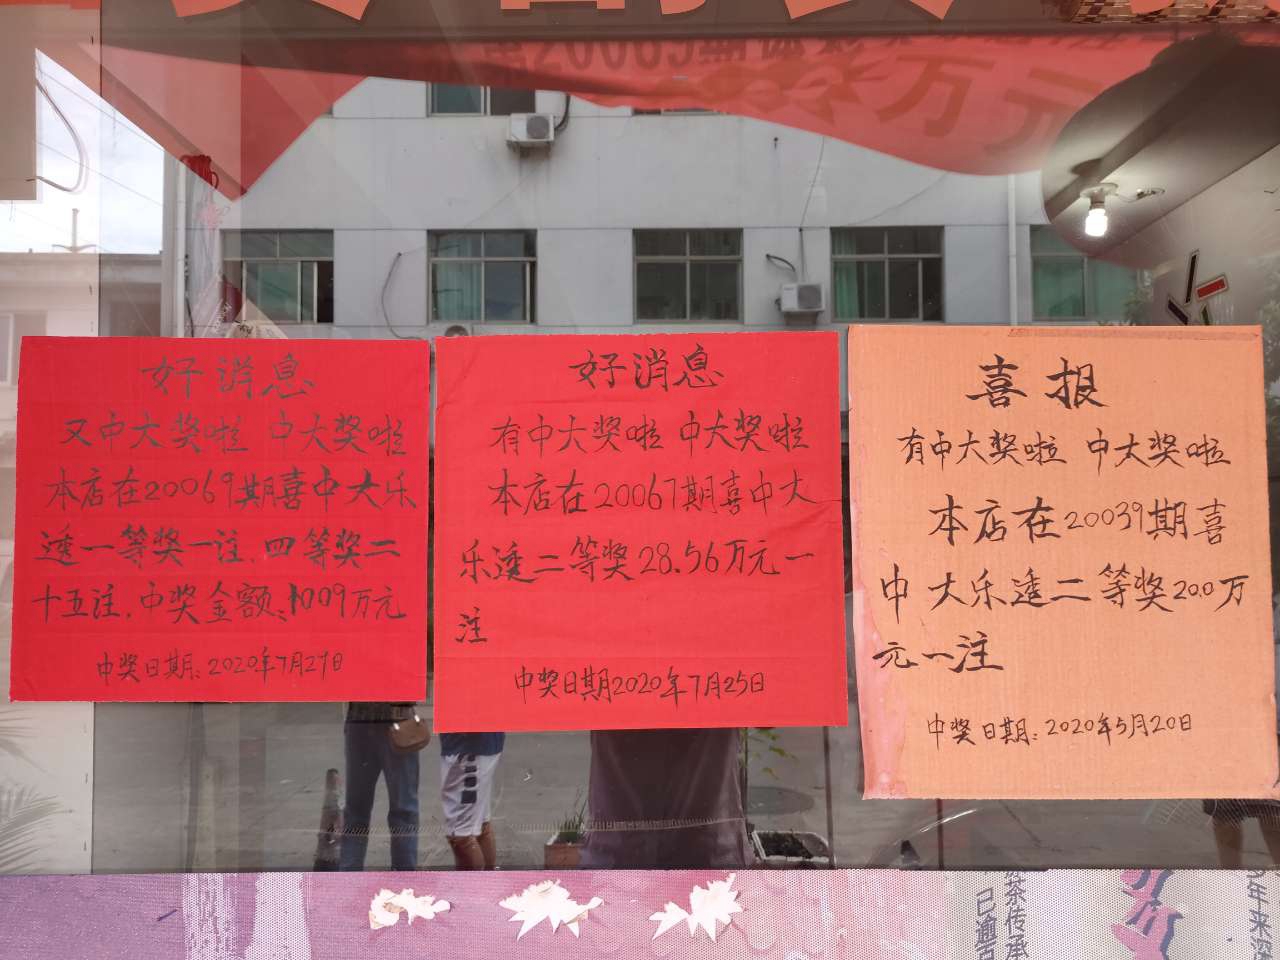 好消息
又中大奖啦 中大奖啦
本店在20069期喜中大乐
透一等奖一注.四等奖二
十五注.中奖金额:1009万元
中奖日期:2020年7月29日
好消息
有中大奖啦 中大奖啦
本店在20067期喜中大
乐透二等奖28.56万元一
注
中奖日期2020年7月25日
喜报
有中大奖啦 中大奖啦
本店在20039期喜
中大乐透二等奖20.0万
元一注
中奖日期:2020年5月20日
万元
茶传承
已逾
年来深